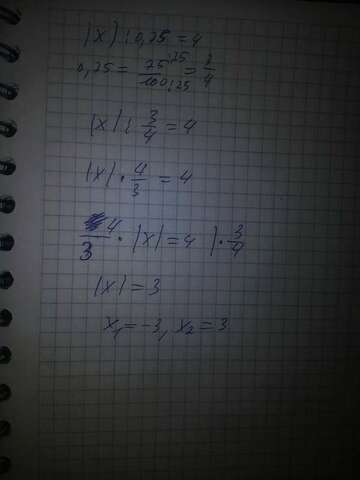 |x| : 0,75 = 4
0,75 = 75 :25 / 100 :25 = 3/4
|x| : 3/4 = 4
|x| · 4/3 = 4
4/3 · |x| = 4 | · 3/4
|x| = 3
x₁ = -3, x₂ = 3